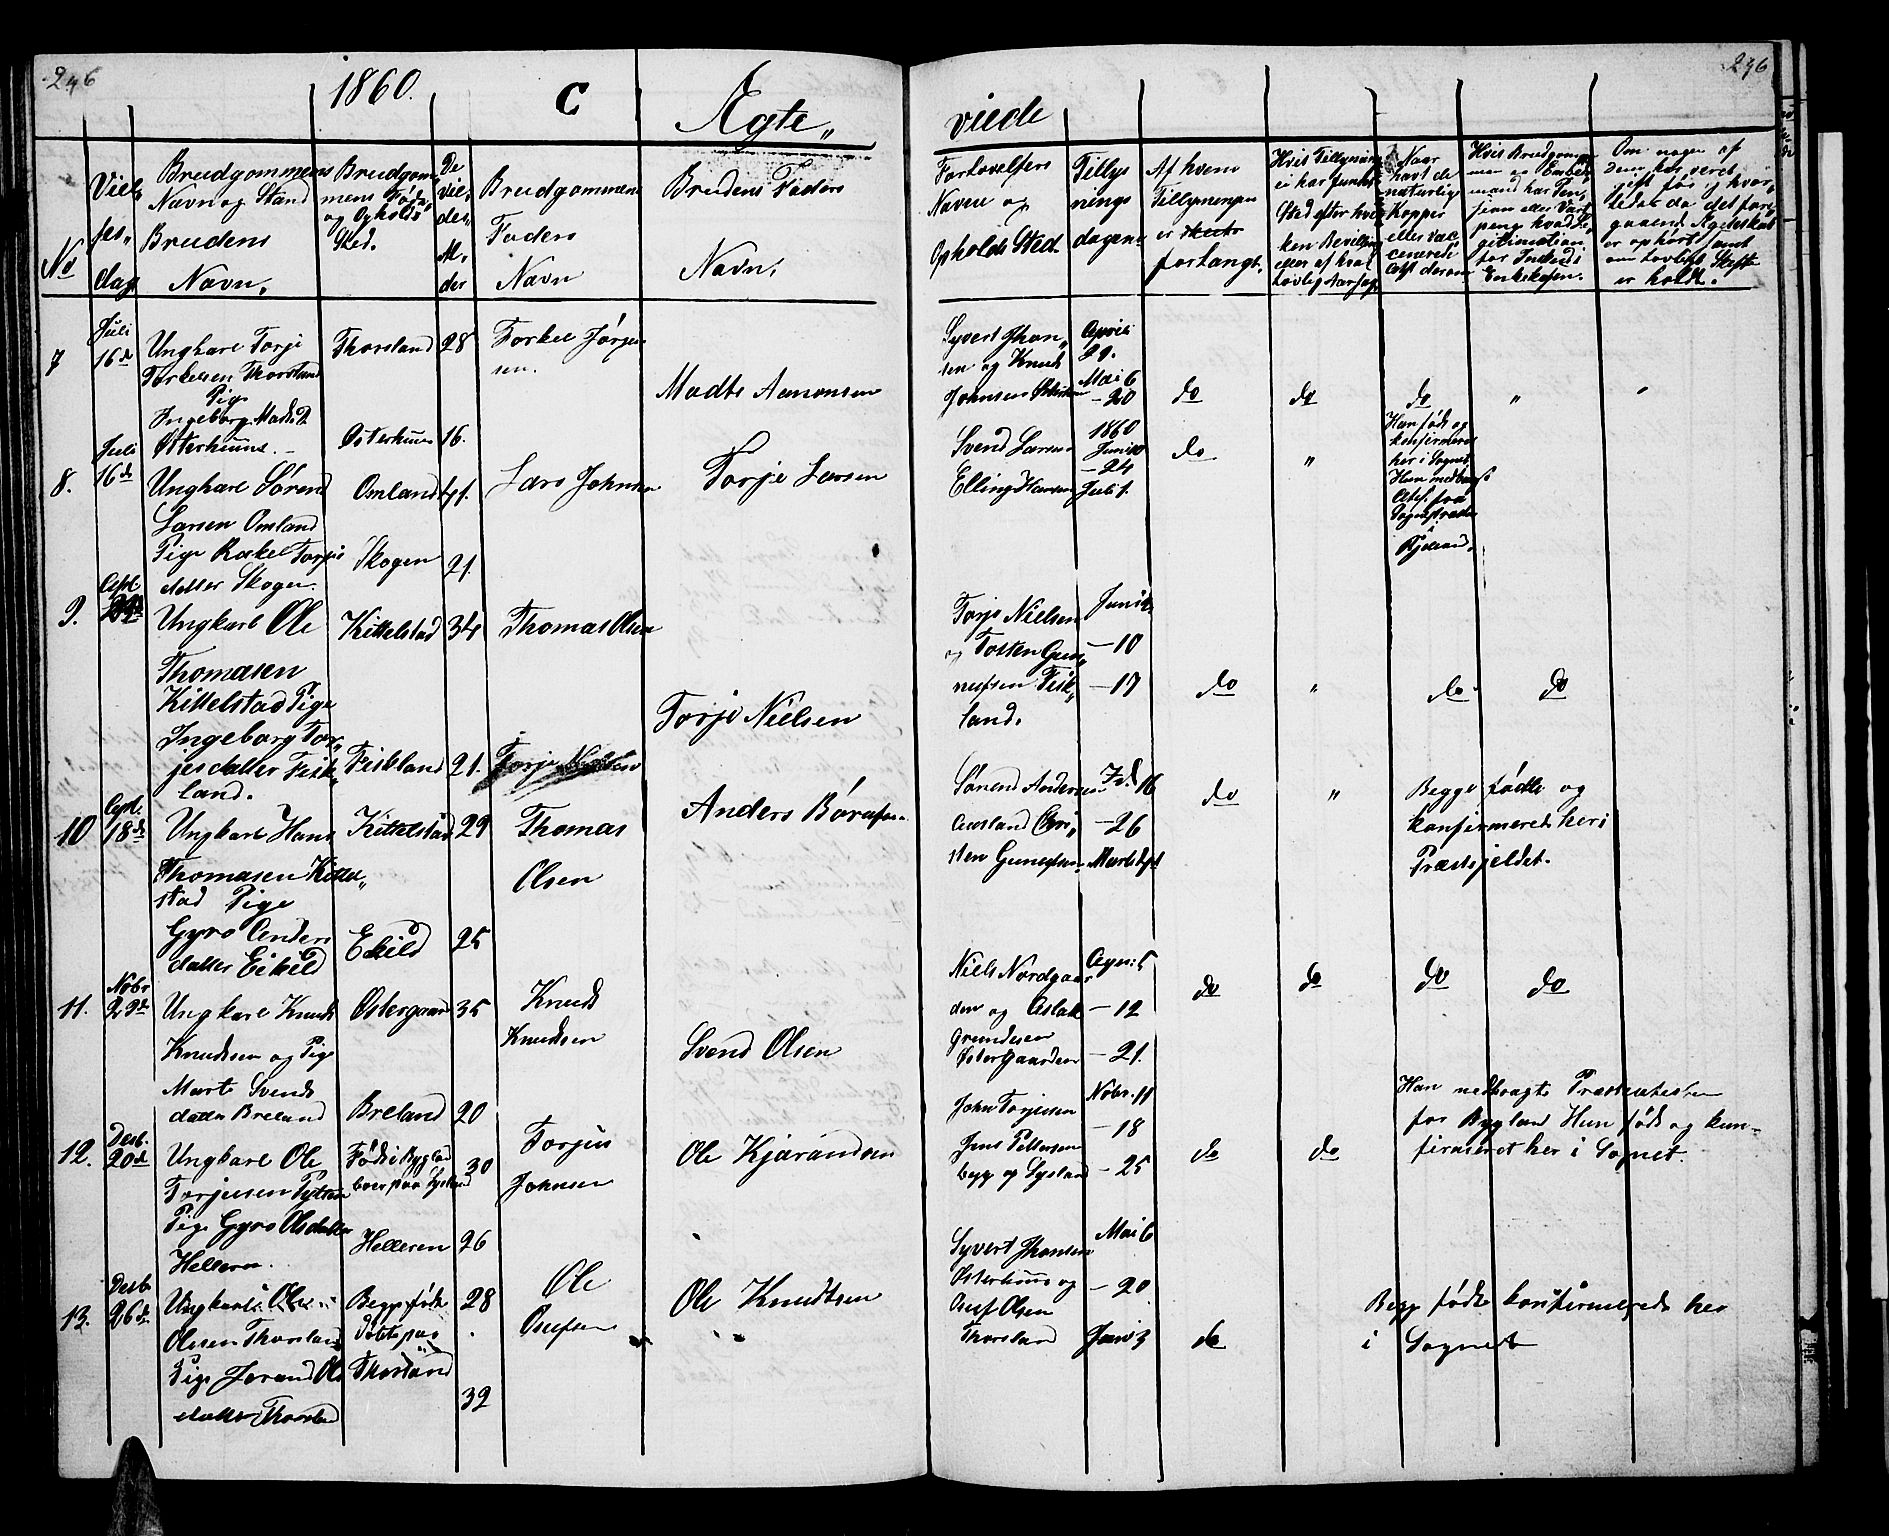 246
1860.
C
Ægte„
viede
246
No
Viel„
ses„
dag
Brudgommens
Navn og Stand
Brudens
Navn.
Brudgom„
mens Føde„
og Opholds
Sted.
De
viel„
des„
Al„
der
Brudgommens
Faders
Navn
Brudens Faders
Navn.
Forlovelsers
Navne og
Opholds Sted.
Tillys
nings
dagene
Af hvem
Tillysningen
er
forlangt.
Hvis Tillysning
ei har fundet
Sted efter hvil
ken Bevilling
eller af hvad
Lovlig Aarsag
Naar
havt de
naturlige
Kopper
eller vac„
cinerede
Attst derom
Hvis Brudgom„
men er Embed
mand har Pen„
sion eller Vart
peng hvad Le
gitimation
for Indsk i
Enkekassen.
Om nogen af
dem har været
gift før og hvor„
ledes da det fore„
gaaende Ægteskab
er ophørt samt
om Lovligt Skifte
er holdt.
7
Juli
16de
Ungkarl Torje
Torkelsen Thorsland
Pige
Ingeborg Madsdt
Østerhuus.
Thorsland
Østerhuus
28
16.
Torkel Jørgen
sen.
Madts Aamonsen
Syvert Jhan„
sen og Knud
Johnsen
April
29.
Mai 6
– 20
do
do
do
„
„
8.
Juli
16de
Ungkarl Sørend
Larsen Omland
Pige Rakel Torjus
datter Skogen
Omland
Skogen
41.
21.
Lars Johnsen
Torje Larsen
Svend Larsen
Elling Hansen
1860
Juni 10
– 24
Juli 1.
do
„
Han født og
konfirmeret
her i Sognet
Hun medbragt
Attest fra
Sognepræsten
i
9.
Sept.
Ungkarl Ole
Thomasen
Kittelstad Pige
Ingeborg Tor„
jesdatter Fisk
land.
Kittelstad
Fiskland
34
21.
Thomas Olsen
Torje Nielsen
Torje Nielsen
Torje Nielsen
og Tosten Gun„
nufsen Fisk„
land.
Juni
– 10
– 17
do
„
do
do
10
Sept.
18de
Ungkarl Hans
Thomasen Kittel„
stad Pige
Gyro Anders
datter Eikild
Kittelstad
Ekild
29
25
Thomas
Olsen
Anders
Sørend Andersen
Aasland Chri„
sten Gunufsen
16
– 26
Marts
do
„
Begge fødte og
konfirmeret her i
Præstgjeldet.
11.
Nobr
22de
Ungkarl Knud
Knudsen og Pige
Marte Svends
datter Breland
Østergaard
Breland
35
20
Knud
Knudsen
Svend Olsen
Niels Nordgaar
den og Aslak
Grundesen
Østergaarden
5
– 12
– 21.
do
do
do
do
12.
Desb.
20de
Ungkarl Ole
Torjusen
Pige Gyro Olsdatter
Helleren
Født i Bygland
boer paa Sysland
Helleren
30
26
Torjus
Johnsen
Ole Kjørandsen
John Torjusen
Jens Pettersen
Bygg og Sysland
Nobr. 11
– 18
– 25
do
do
Han medbragte Præsteattesten
for Bygland Hun født og kon„
firmeret her i Sognet.
13.
Desb
26de
Ungkarl Ole
Olesen Thorsland
Pige Jorand Ols
datter Thorsland
Begge født
Døbte paa
Thorsland
28
32
Ole
Osufsen
Ole Knudtsen
Syvert Jhansen
Østerhuus og
Osuf Olsen
Thorsland
Mai 6
– 20
Juni 3
do
Begge fødte konfirmerede her
i Sognet